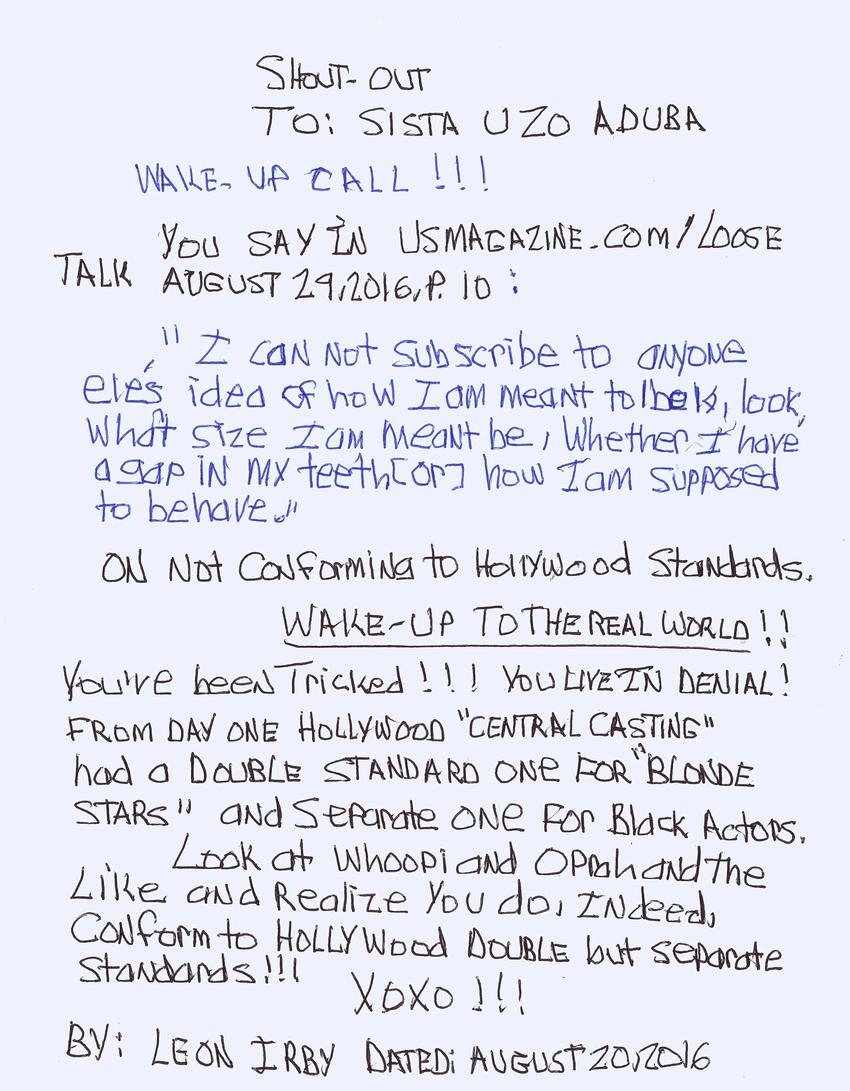 SHOUT-OUT
TO: SISTA UZO ADUBA
WAKE-UP CALL !!!
YOU SAY IN USMAGAZINE.COM/LOOSE
TALK AUGUST 29,2016,P. 10 :
"I CAN NOT SUBSCRIBE TO ANYONE
ele's idea of how I am meant to look,
what size I am meant be, whether I have
a gap in my teeth [or] how I am supposed
to behave."
ON NOT CONFORMING to Hollywood Standards.
WAKE-UP TO THE REAL WORLD!!
You've been Tricked!!! YOU LIVE IN DENIAL!
FROM DAY ONE HOLLYWOOD "CENTRAL CASTING"
had a DOUBLE STANDARD ONE FOR "BLONDE
STARS" and Separate ONE For Black Actors.
Look at Whoopi and Oprah and the
Like and Realize You do, INdeed,
Conform to HOLLYWood DOUBLE but separate
Standards!!!
XOXO !!!
BY: LEON IRBY DATED: AUGUST 20,2016